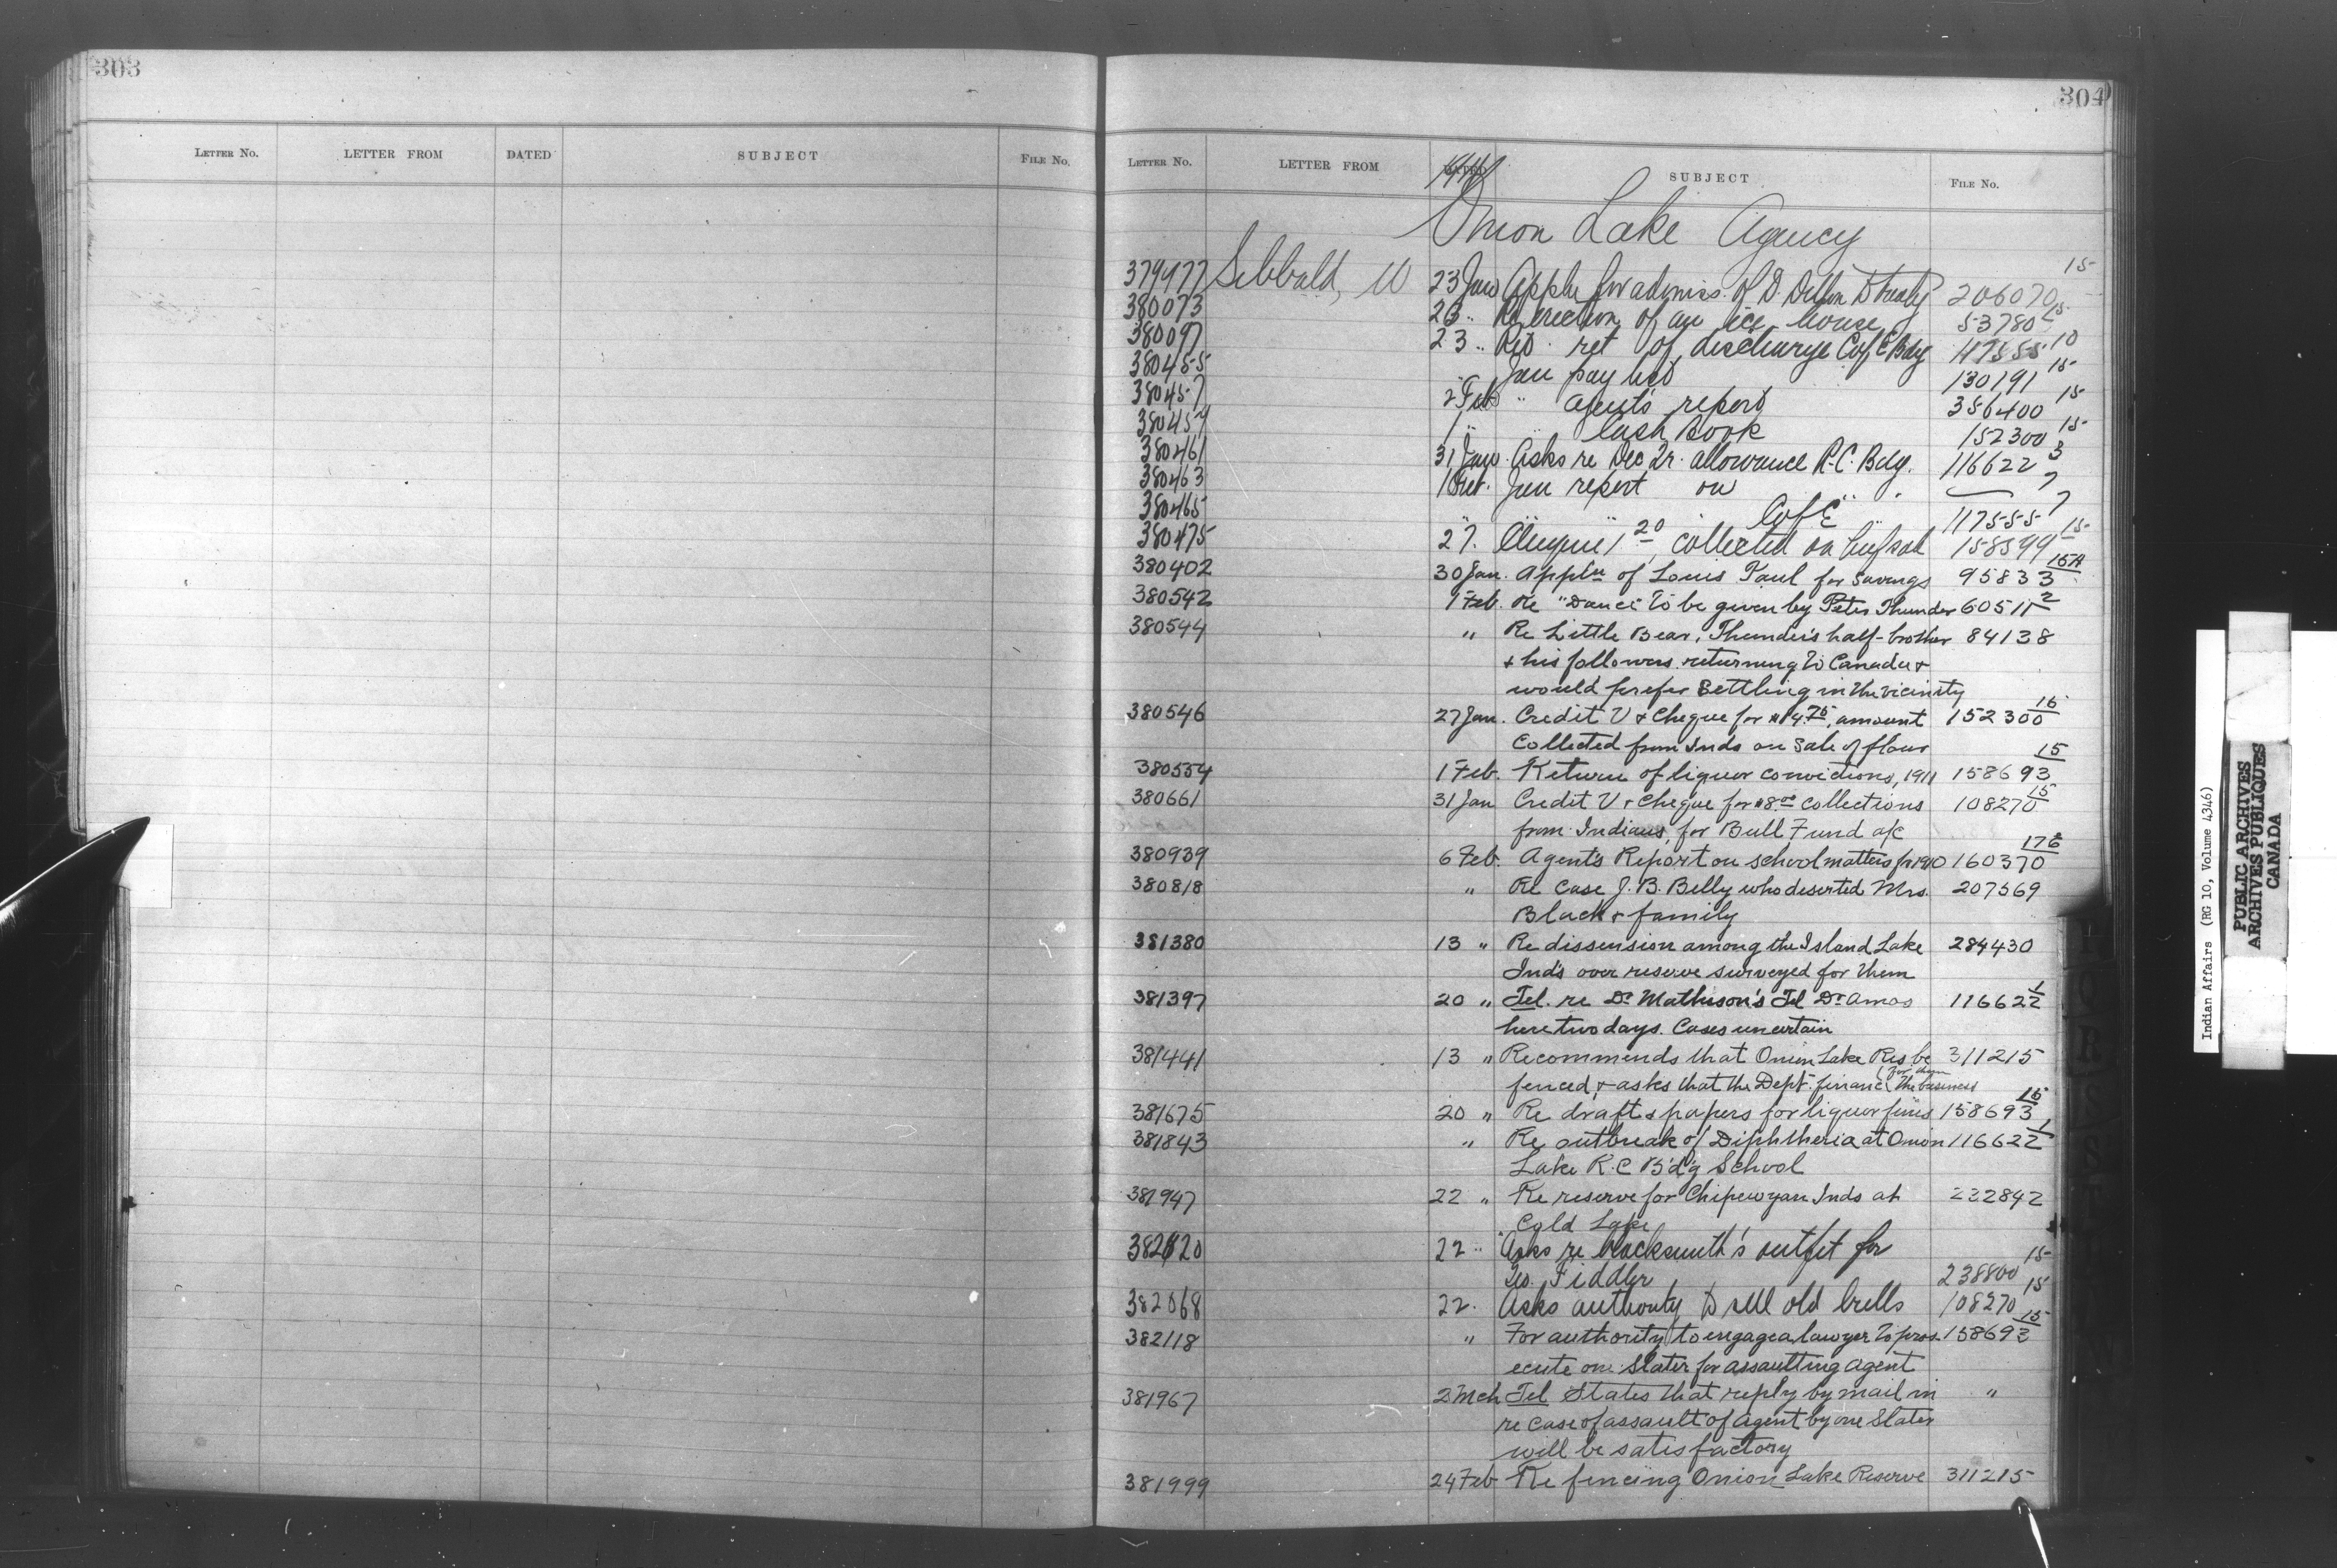 303
LETTER NO. LETTER FROM DATED SUBJECT FILE No.
304
LETTER No. LETTER FROM SUBJECT FILE No.
Onion Lake Agency
379977 Sibbald, W 23 Jan Appln for admiss. of D. Dillon 206070 15
380073 23 " Re erection of an ice house 53780 15
380097 23 " Ret of discharge C of E Bdg 117555 10
380455 Jan pay list 130191 15
380457 2 Feb " Agent's report 356400 15
380459 1 " " Cash Book 152300 15
380461 31 Jan. Asks re Dec Qr. allowance R.C. Bdg. 116622 3
380463 1 Feb. Jan report on " " 7
380465 " " " C of E 117555 7
380475 27. Cheque 1 20 collected on beef sold 158599 15
380402 30 Jan. Appln of Louis Paul for Savings 95833 15A
380542 1 Feb. Re "Dance" to be given by Peter Thunder 60511 2
380544 " Re Little Bear, Thunder's half-brother 84138
& his followers returning to Canada &
would prefer Settling in the vicinity
380546 27 Jan. Credit V & Cheque for $14.75, amount 152300 15
Collected from Inds on Sale of flour
380554 1 Feb. Return of liquor convictions, 1911 158693 15
380661 31 Jan Credit V & Cheque for $8.00 collections 108270 15
from Indians, for Bull Fund a/c
380939 6 Feb. Agent's Report on school matters for 1910 160370 176
380818 " Re Case J. B. Belly who deserted Mrs. 207569
Black & family
381380 13 " Re dissension among the Island Lake 284430
Inds over reserve surveyed for them
381397 20 " Tel. re Dr Matheson's Tel Dr Amos 116622 1
here two days. Cases uncertain
381441 13 " Recommends that Onion Lake Res be 311215
fenced & asks that the Dept. finance the business for them
381675 20 " Re draft & papers for liquor fines 158693 15
381843 " Re outbreak of Diphtheria at Onion 116622 1
Lake R.C Bd'g School
381947 22 " Re reserve for Chipewyan Inds at 232842
Cold Lake
382120 22 " Asks re blacksmith's outfit for
Geo. Fiddler 238800 15
382068 22. Asks authority to sell old bulls 108270 15
382118 " For authority to engage a lawyer to pros- 158693 15
ecute one Slater for assaulting agent
381967 2 Mch Tel States that reply by mail in "
re case of assault of agent by one Slater
will be satisfactory
381999 24 Feb Re fencing Onion Lake Reserve 311215
Indian Affairs (RG 10, Volume 4346)
PUBLIC ARCHIVES
ARCHIVES PUBLIQUES
CANADA